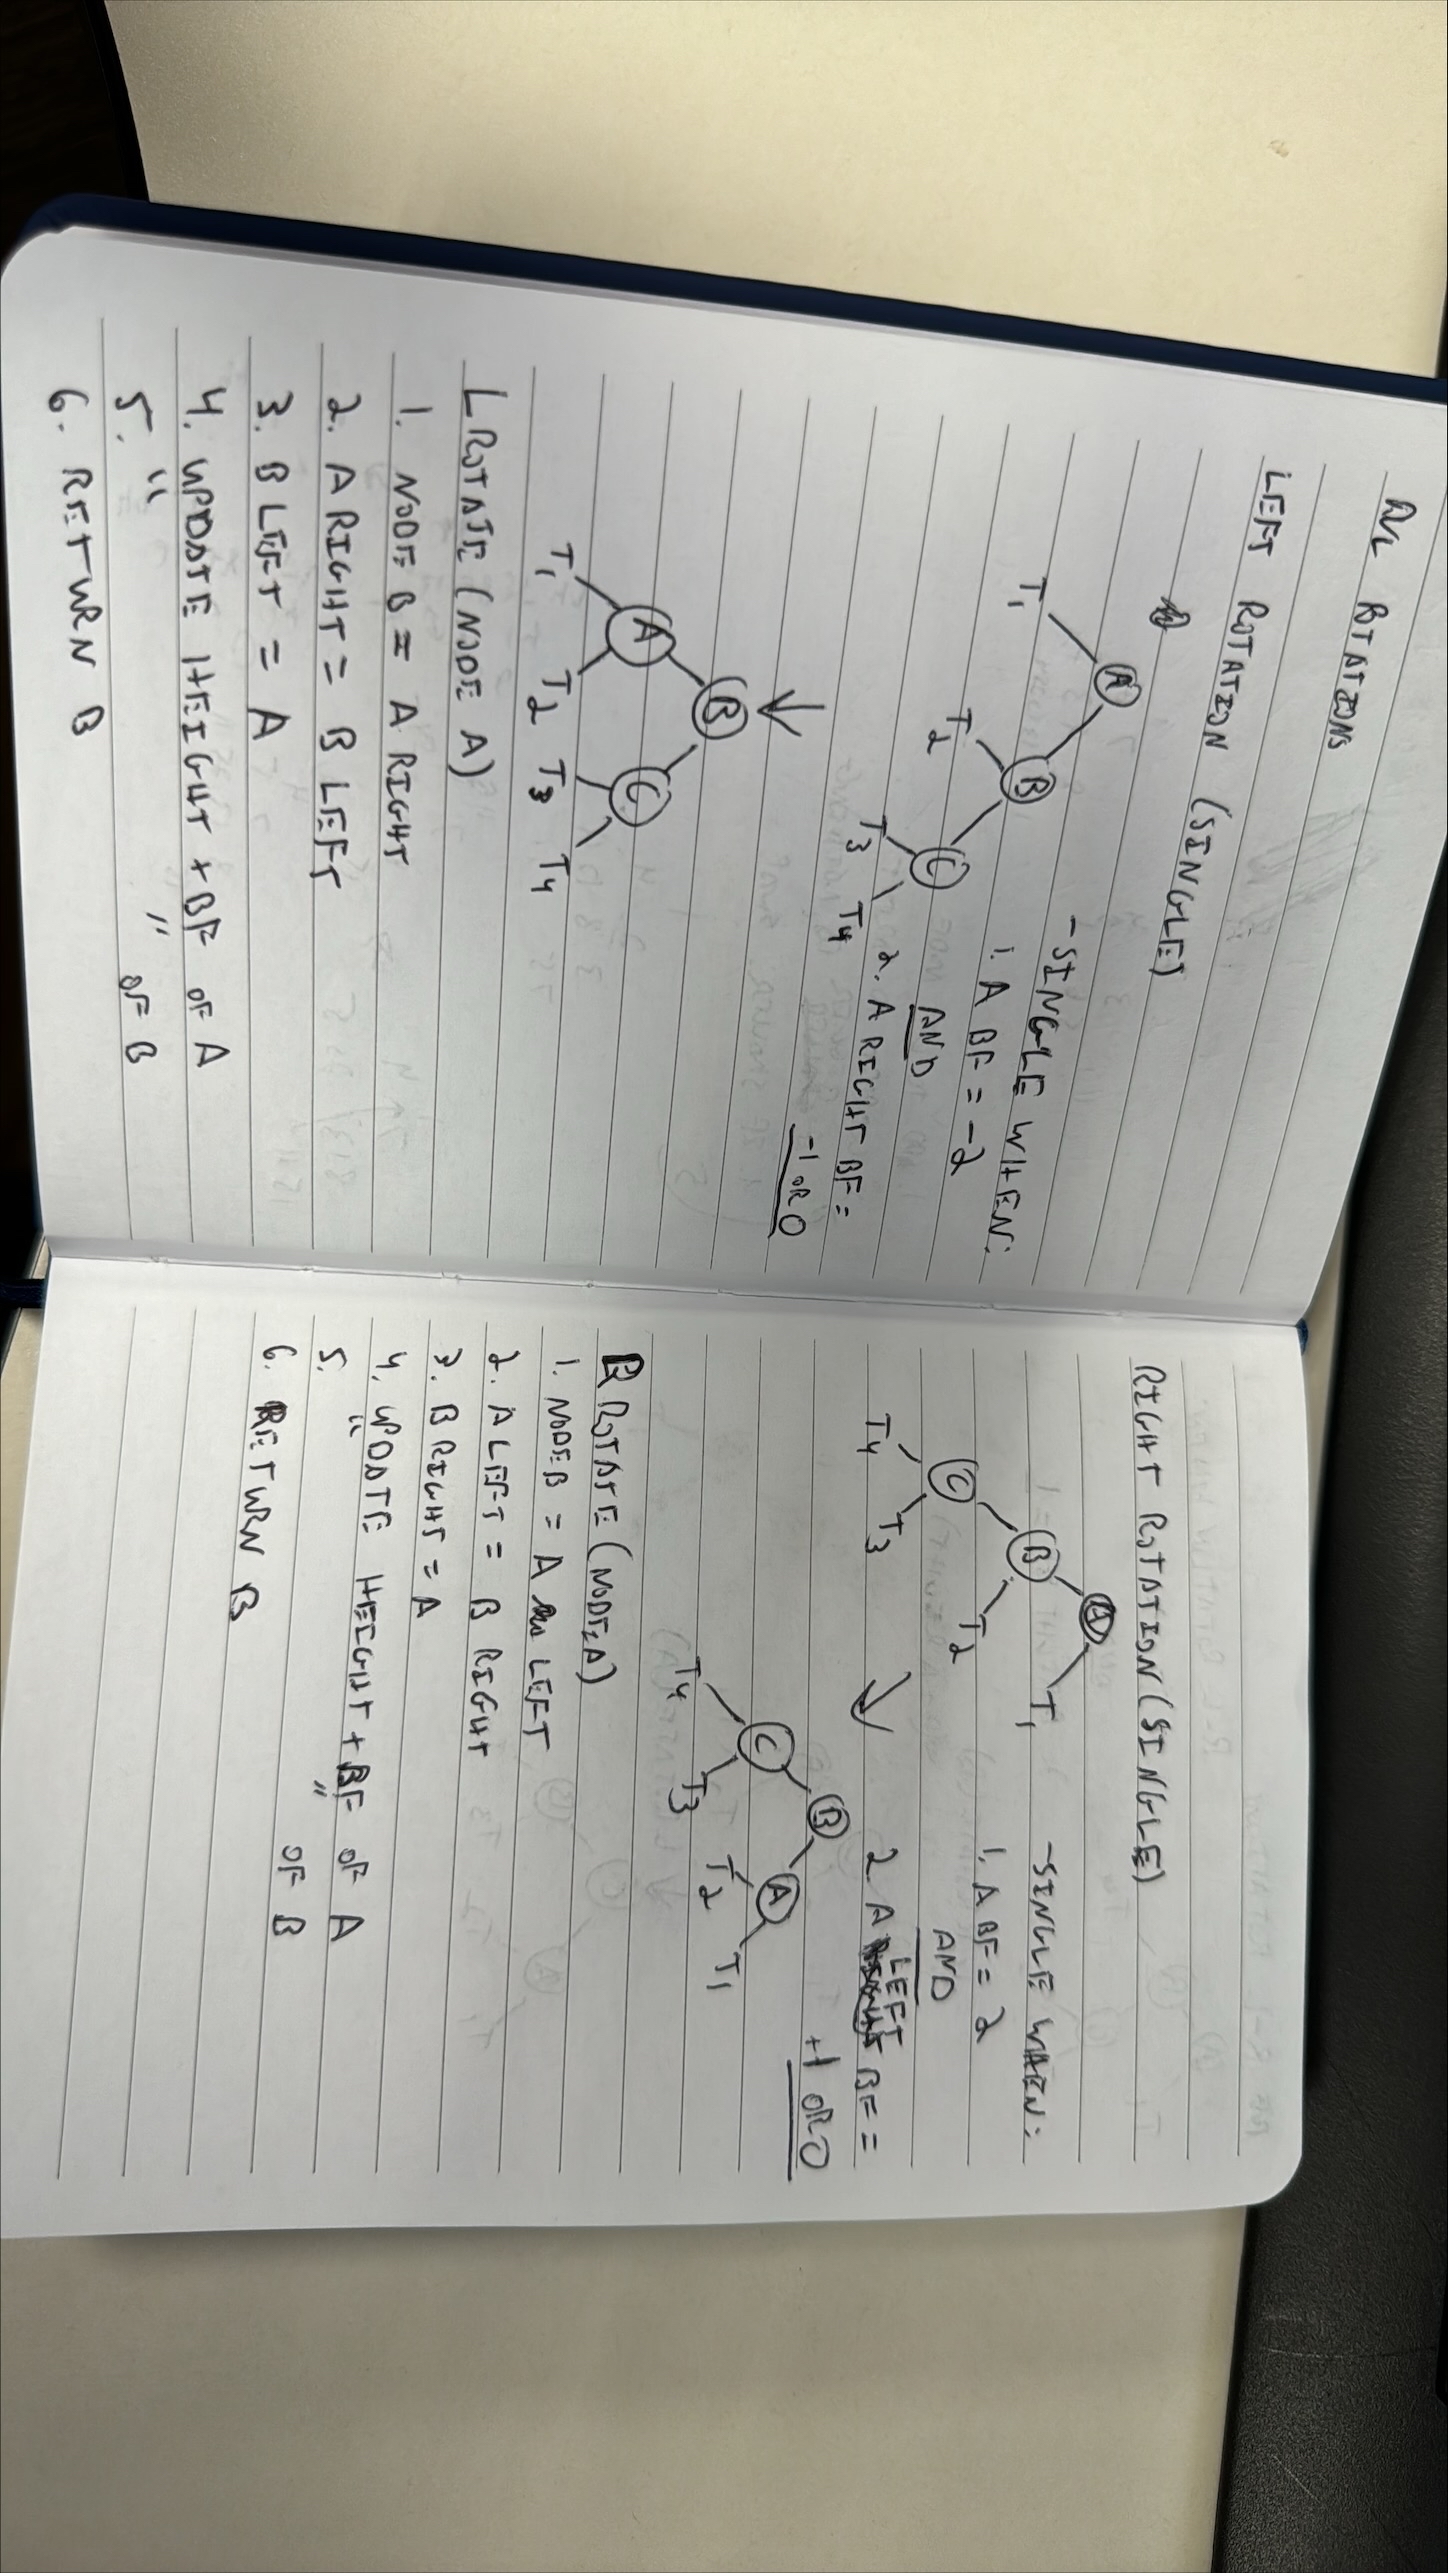 AVL ROTATIONS
LEFT ROTATION (SINGLE)
A
T1
B
T2
C
T3
T4
-SINGLE WHEN:
1. A BF = -2
AND
2. A RIGHT BF =
-1 OR 0
B
A
C
T1
T2
T3
T4
L ROTATE (NODE A)
1. NODE B = A RIGHT
2. A RIGHT = B LEFT
3. B LEFT = A
4. UPDATE HEIGHT + BF OF A
5. " " OF B
6. RETURN B
RIGHT ROTATION (SINGLE)
A
B
T1
C
T2
T4
T3
-SINGLE WHEN:
1. A BF = 2
AND
2. A LEFT BF =
+1 OR 0
B
C
A
T4
T3
T2
T1
R ROTATE (NODE A)
1. NODE B = A LEFT
2. A LEFT = B RIGHT
3. B RIGHT = A
4. UPDATE HEIGHT + BF OF A
5. " " OF B
6. RETURN B